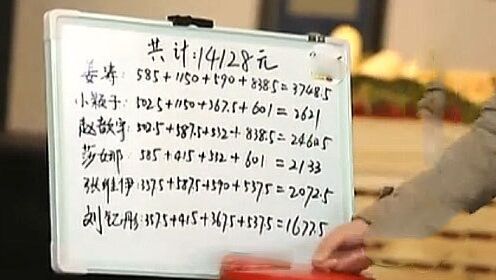 共计:14128元
姜涛: 585+1150+590+838.5=3748.5
小颖子: 502.5+1150+367.5+601=2621
赵 宇: 502.5+587.5+532+838.5=2460.5
莎娜: 585+415+532+601=2133
张维伊: 357.5+587.5+590+537.5=2072.5
刘钇彤: 357.5+415+367.5+537.5=1677.5